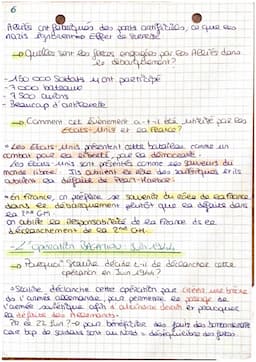 6
Alliés ont fabriqués des ports artificiels, ce que les
nazis
→ Quelles sont les forces engagées par les Alliés dans
le débarquement?
- 150 000 soldats y ont participé
- 7 000 bateaux
- 7 500 avions
- Beaucoup d'artillerie
→ Comment cet évènement a-t-il été utilisé par les
États-Unis et la France?
• Les États-Unis présentent cette bataille comme un
combat pour la liberté, pour la démocratie.
Les États-Unis sont présentés comme les sauveurs du
monde libre. Ils oublient le rôle des et ils
oublient la défaite de Pearl-Harbor.
• En France, on préfère se souvenir du rôle de la France
dans la plutôt que la défaite dans
la 2nd GM.
on oublie la responsabilité de la France ds le
déclenchement de la 2nd GM.
- L'opération BAGRATION : JUIN 1944
→ Pourquoi Staline décide-t-il de déclencher cette
opération en Juin 1944?
• Staline déclenche cette opération pour créer une brèche
ds l'armée allemande, pour permettre le passage de
l'armée soviétique afin d' et pourquoi
la défaite des Allemands.
Po le 22 Juin? → pour bénéficier des jours
car bcp de soldats sont au Nord →